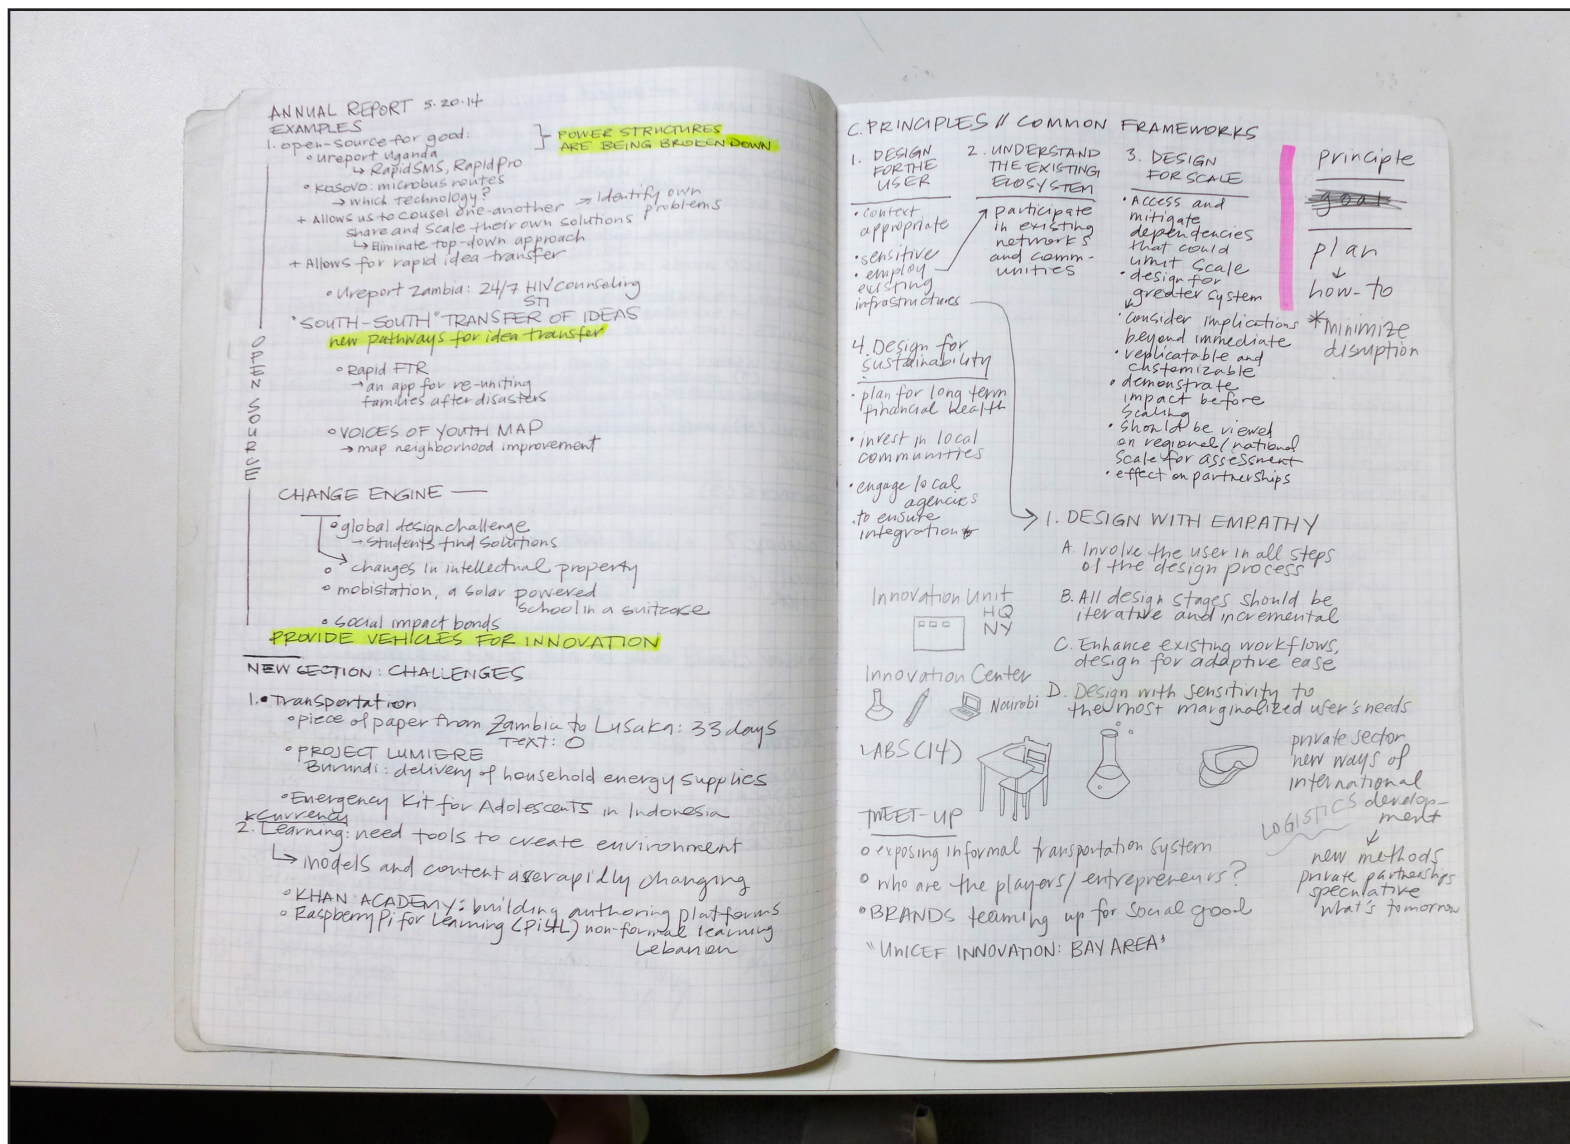 ANNUAL REPORT 5.20.14
EXAMPLES
1. open-source for good:
POWER STRUCTURES
ARE BEING BROKEN DOWN
° Ureport Uganda
↳ RapidSMS, RapidPro
° Kosovo: microbus routes
→ which technology?
+ Allows us to cousel one-another → Identify own
problems
share and scale their own solutions
↳ Eliminate top-down approach
+ Allows for rapid idea transfer
° Ureport Zambia: 24/7 HIV counseling
STI
"SOUTH-SOUTH" TRANSFER OF IDEAS
new pathways for idea transfer
OPEN SOURCE
° Rapid FTR
→ an app for re-uniting
families after disasters
° VOICES OF YOUTH MAP
→ map neighborhood improvement
CHANGE ENGINE —
° global design challenge
→ students find solutions
° changes in intellectual property
° mobistation, a solar powered
school in a suitcase
° social impact bonds
PROVIDE VEHICLES FOR INNOVATION
NEW SECTION: CHALLENGES
1. • Transportation
° piece of paper from Zambia to Lusaka: 33 days
TEXT: 0
° PROJECT LUMIERE
Burundi: delivery of household energy supplies
° Emergency Kit for Adolescents in Indonesia
* Currency
2. Learning: need tools to create environment
↳ models and content are rapidly changing
° KHAN ACADEMY: building authoring platforms
° Raspberry Pi for Learning (Pi4L) non-formal learning
Lebanon
C. PRINCIPLES // COMMON FRAMEWORKS
1. DESIGN
FOR THE
USER
• context
appropriate
• sensitive
• employ
existing
infrastructures
2. UNDERSTAND
THE EXISTING
ECOSYSTEM
participate
in existing
networks
and comm-
unities
3. DESIGN
FOR SCALE
• Access and
mitigate
dependencies
that could
limit scale
• design for
greater system
• consider implications
beyond immediate
• replicatable and
customizable
• demonstrate
impact before
scaling
• should be viewed
on regional/national
scale for assessment
• effect on partnerships
principle
goal
plan
↓
how-to
* minimize
disruption
4. Design for
sustainability
• plan for long term
financial health
• invest in local
communities
• engage local
agencies
• to ensure
integration
1. DESIGN WITH EMPATHY
A. Involve the user in all steps
of the design process
B. All design stages should be
iterative and incremental
C. Enhance existing workflows,
design for adaptive ease
D. Design with sensitivity to
the most marginalized user's needs
Innovation Unit
HQ
NY
Innovation Center
Nairobi
LABS (14)
private sector
new ways of
international
develop-
ment
LOGISTICS
↓
new methods
private partnerships
speculative
what's tomorrow
TMEET-UP
° exposing informal transportation system
° who are the players/entrepreneurs?
° BRANDS teaming up for social good
"UNICEF INNOVATION: BAY AREA"